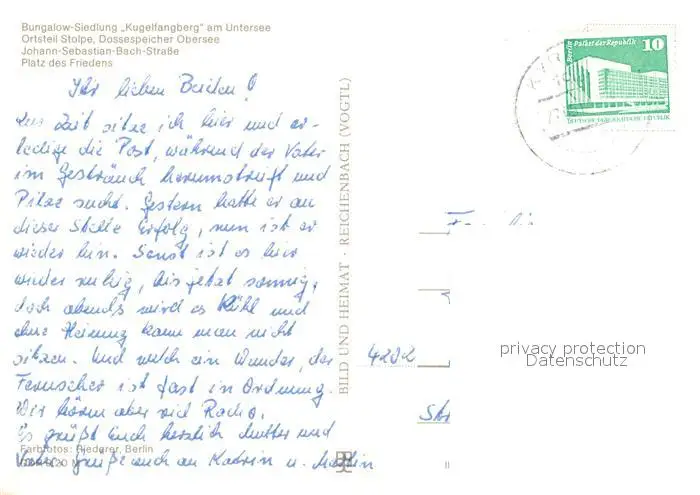 Bungalow-Siedlung „Kugelfangberg" am Untersee
Ortsteil Stolpe, Dossespeicher Obersee
Johann-Sebastian-Bach-Straße
Platz des Friedens
Ihr lieben Beiden!
Zur Zeit sitze ich hier und er-
ledige die Post, während der Vater
im Gesträuch herumstreift und
Pilze sucht. Gestern hatte er an
dieser Stelle Erfolg, nun ist er
wieder hin. Sonst ist es hier
wieder ruhig, bis jetzt sonnig,
doch abends wird es kühl und
ohne Heizung kann man nicht
sitzen. Und welch ein Wunder, der
Fernseher ist fast in Ordnung.
Wir hören aber viel Radio.
Es grüßt Euch herzlich Mutter und
Vater Grüße auch an Katrin u.
Farbfotos: Riederer, Berlin
BILD UND HEIMAT · REICHENBACH (VOGTL)
Berlin Palast der Republik 10
DEUTSCHE DEMOKRATISCHE REPUBLIK
Familie
4292
Str
privacy protection
Datenschutz